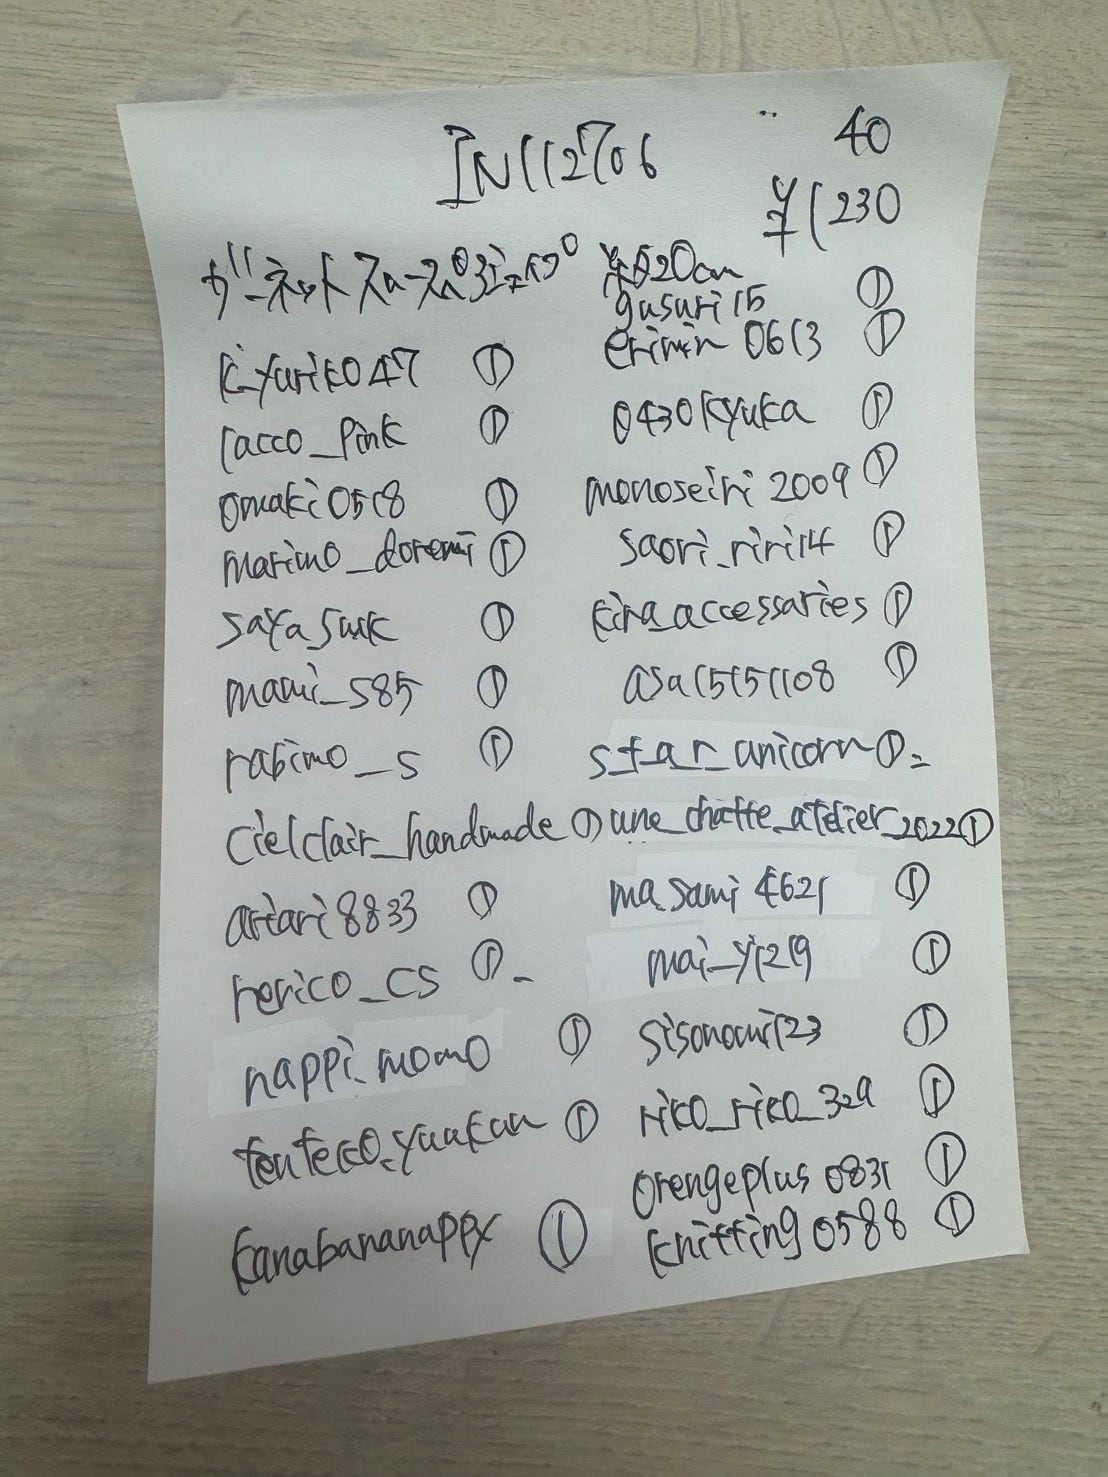 IN112706
40
¥1230
kiyuriko047 ①
racco_pink ①
omaki0518 ①
marimo_doremi ①
saya_suk ①
mami_585 ①
rabimo_s ①
cielclair_handmade ①
ariari8833 ①
rerico_cs ①
nappi_momo ①
tenteko_yuukun ①
kanabananappy ①
gusuri15 ①
erimin0613 ①
0430kyuka ①
monoseiri2009 ①
saori_riri14 ①
kira_accessaries ①
asa15151108 ①
s_t_a_r_unicorn ①
une_chatte_atelier_2022 ①
masami4621 ①
mai_y1219 ①
sisonomi123 ①
rico_rico_329 ①
orengeplus0831 ①
knitting0588 ①